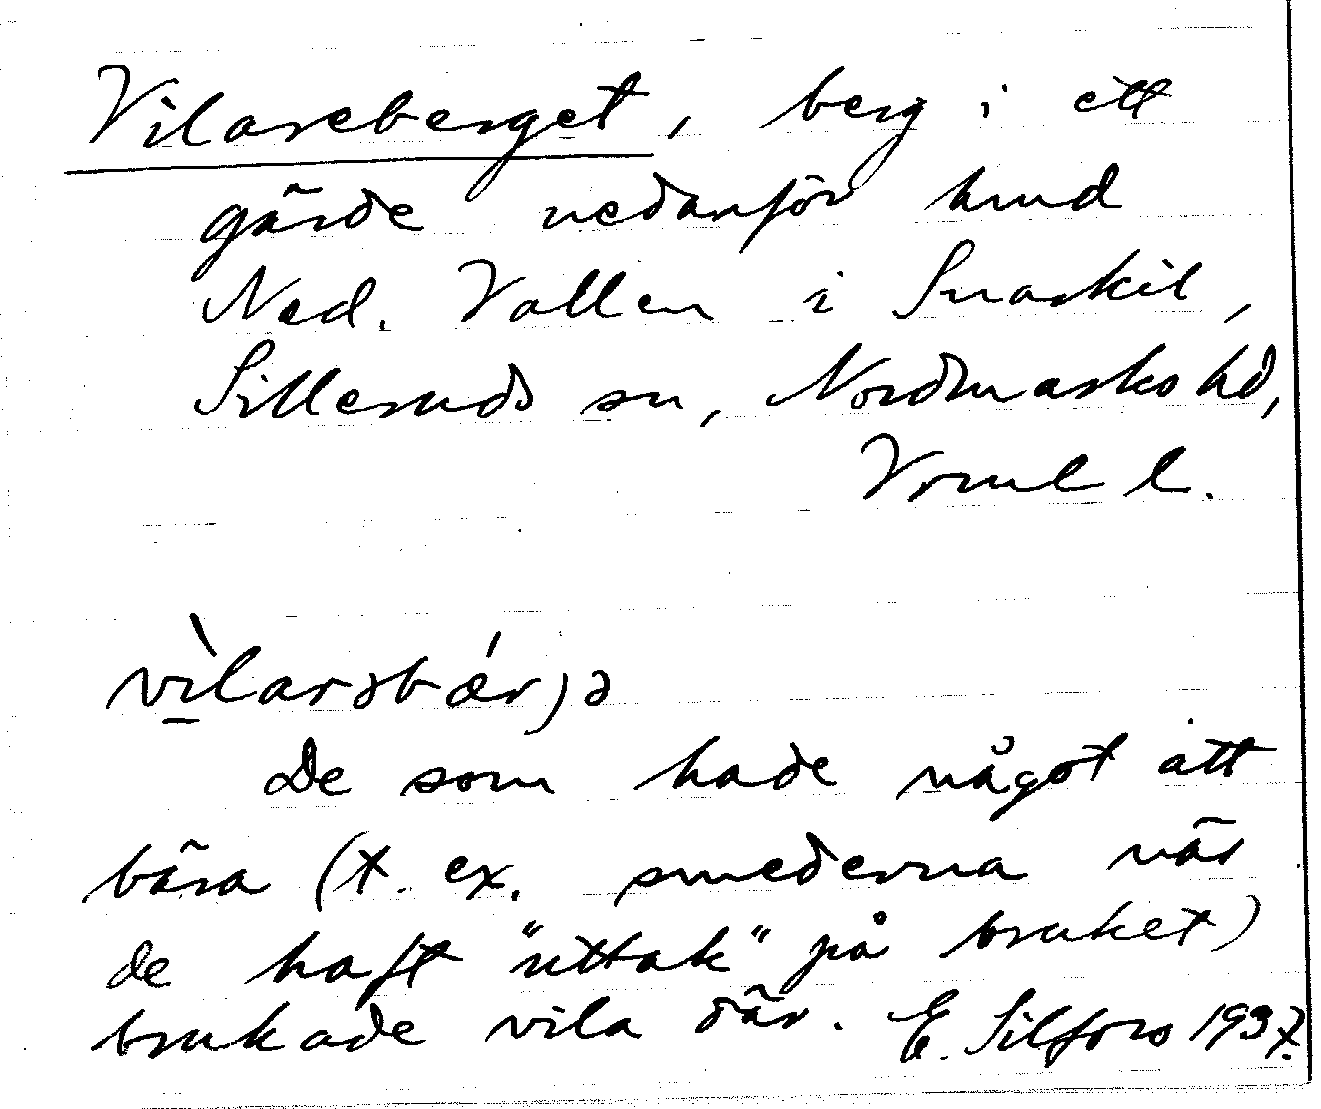 Vilareberget, berg i ett
gärde nedanför hmd
Ned. Vallen i Snarkil,
Silleruds sn, Nordmarks hd,
Vrml l.
vìlarəbǽrjə
De som hade något att
bära (t. ex. smederna när
de haft "uttak" på bruket)
brukade vila där. E. Silfors 1937.